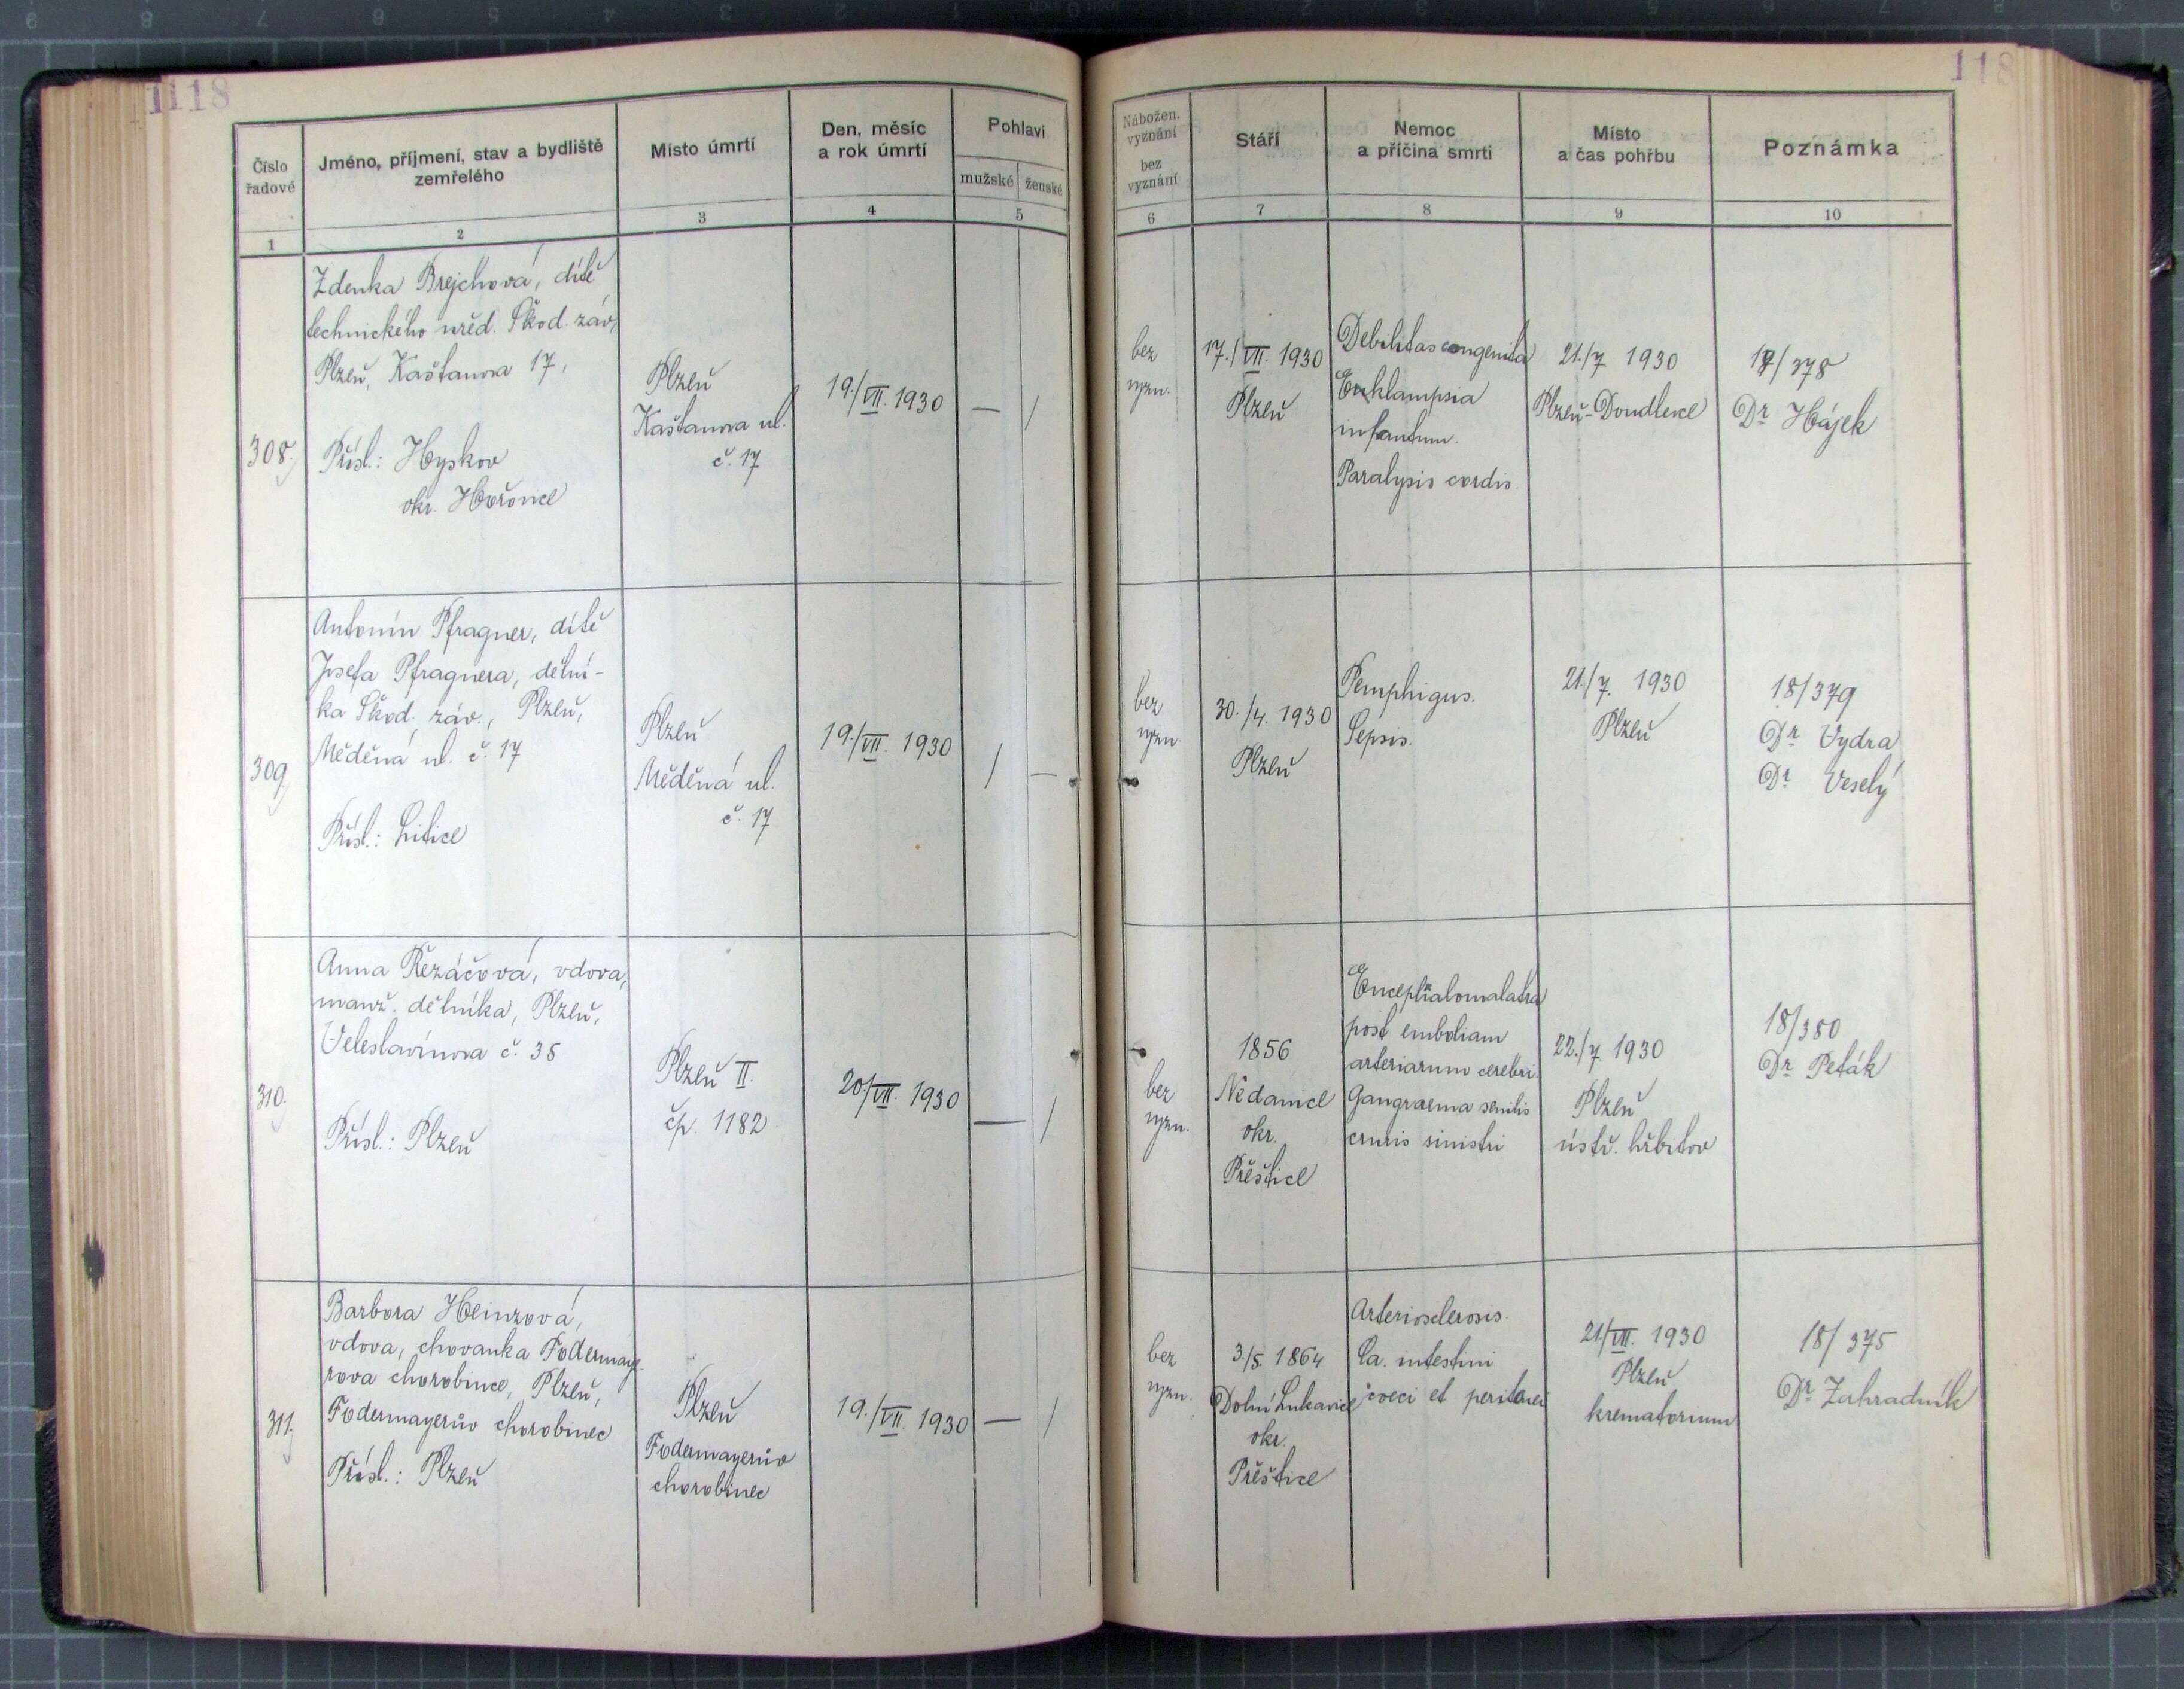 1118
118
Číslo řadové
Jméno, příjmení, stav a bydliště zemřelého
Místo úmrtí
Den, měsíc a rok úmrtí
Pohlaví
mužské
ženské
Nábožen. vyznání
bez vyznání
Stáří
Nemoc a příčina smrti
Místo a čas pohřbu
Poznámka
1
2
3
4
5
6
7
8
9
10
308.
Zdenka Brejchová, dítě
technického uřed. Škod. záv,
Plzeň, Kaštanova 17,
Přísl.: Hyskov
okr. Hořovice
Plzeň
Kaštanova ul.
č. 17
19./VII. 1930
—
/
bez
vyzn.
17./VII. 1930
Plzeň
Debilitas congenita
Enklampsia
infantum.
Paralysis cordis.
21./7 1930
Plzeň-Doudlevce
18/378
Dr Hájek
309
Antonín Pfragner, dítě
Josefa Pfragnera, dělní-
ka Škod. záv., Plzeň,
Měděná ul. č. 17
Přísl.: Litice
Plzeň
Měděná ul.
č. 17
19./VII. 1930
/
—
bez
vyzn.
30./4. 1930
Plzeň
Pemphigus.
Sepsis.
21./7. 1930
Plzeň
18/379
Dr Vydra
Dr Veselý
310.
Anna Řezáčová, vdova,
manž. dělníka, Plzeň,
Veleslavínova č. 38
Přísl.: Plzeň
Plzeň II.
čp. 1182
20./VII. 1930
—
/
bez
vyzn.
1856
Nedanice
okr.
Přeštice
post emboliam
arteriarum cerebri.
Gangraema senilis
cruris sinistri
22./7 1930
Plzeň
ústř. hřbitov
18/380
Dr Peták
311.
Barbora Heinzová,
vdova, chovanka Fodermaye-
rova chorobince, Plzeň,
Fodermayerův chorobinec
Přísl.: Plzeň
Plzeň
Fodermayerův
chorobinec
19./VII. 1930
—
/
bez
vyzn.
3./5. 1864
Dolní Lukavice
okr.
Přeštice
Arteriosclerosis.
Ca. intestini
coeci et peritonei
21./VII. 1930
Plzeň
krematorium
18/375
Dr Zahradník